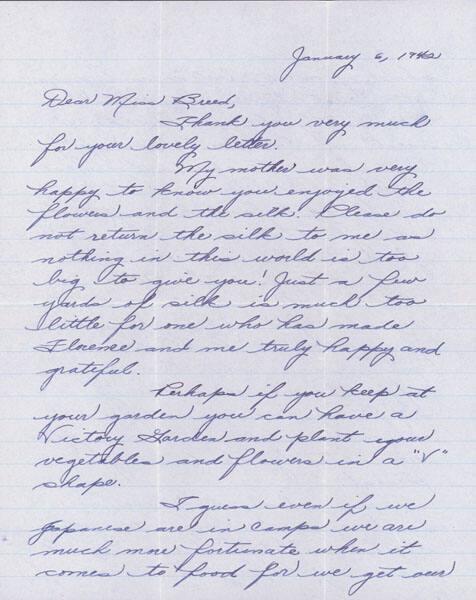 January 6, 1942
Dear Miss Breed,
Thank you very much
for your lovely letter.
My mother was very
happy to know you enjoyed the
flowers and the silk. Please do
not return the silk to me as
nothing in this world is too
big to give you! Just a few
yards of silk is much too
little for one who has made
Florence and me truly happy and
grateful.
Perhaps if you keep at
your garden you can have a
Victory Garden and plant your
vegetables and flowers in a "V"
shape.
I guess even if we
Japanese are in camps we are
much more fortunate when it
comes to food for we get our